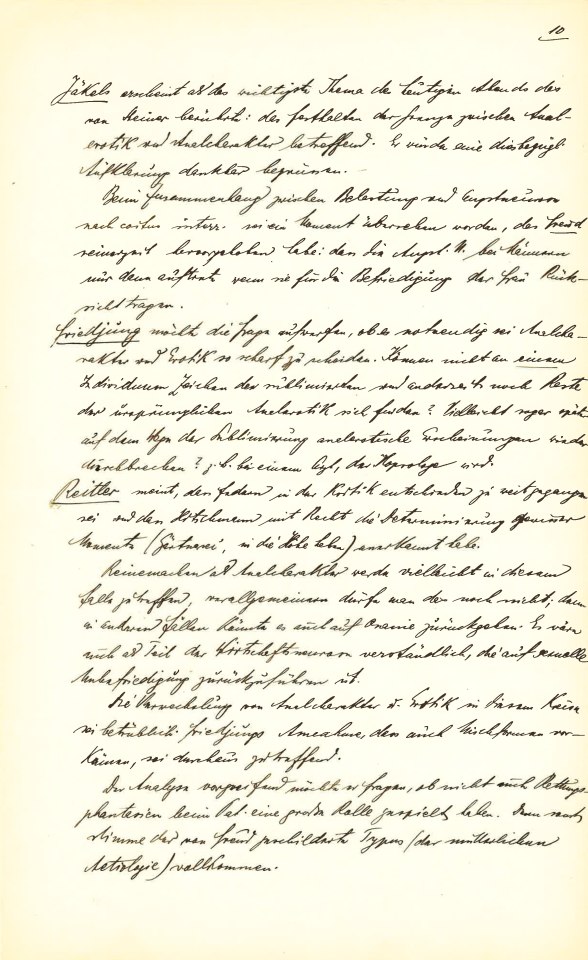 10
Jekels erscheint als das wichtigste Thema des heutigen Abends das
von Steiner berührte: das Festhalten der Grenze zwischen Anal-
erotik und Analcharakter betreffend. Er würde eine diesbezügl.
Aufklärung dankbar begrüssen. –
Beim Zusammenhang zwischen Belastung und Angstneurose
nach coitus interr. sei ein Moment übersehen worden, das Freud
seinerzeit hervorgehoben habe: dass die Angst. N. bei Männern
nur dann auftrete wenn sie für die Befriedigung der Frau Rück-
sicht tragen.
Friedjung möchte die Frage aufwerfen, ob es notwendig sei Analcha-
rakter und Erotik so scharf zu scheiden. Können nicht an einem
Individuum Zeichen der sublimierten und anderseits noch Reste
der ursprünglichen Analerotik sich finden? Vielleicht sogar später
auf dem Wege der Sublimierung analerotische Erscheinungen wieder
durchbrechen? z. b. bei einem Arzt, der Koprologe wird.
Reitler meint, dass Federn in der Kritik entschieden zu weit gegangen
sei und dass Hitschmann mit Recht die Determinisierung gewisser
Momente (Gärtnerei, in die Höhe heben) anerkannt habe.
Reinemachen als Analcharakter werde vielleicht in diesem
Falle zutreffen, verallgemeinern dürfe man das noch nicht; denn
in anderen Fällen könnte es auch auf Onanie zurückgehen. Es wäre
auch als Teil der Wirtschaftsneurose verständlich, die auf sexuelle
Unbefriedigung zurückzuführen ist.
Die Verwechslung von Analcharakter u. Erotik in diesem Kreise
sei betrüblich. Friedjungs Annahme, dass auch Mischformen vor-
kämen, sei durchaus zutreffend.
Der Analyse vorgreifend möchte er fragen, ob nicht auch Rettungs-
phantasien beim Pat. eine grosse Rolle gespielt haben. Denn sonst
stimme der von Freud geschilderte Typus (der mütterlichen
Aetiologie) vollkommen.